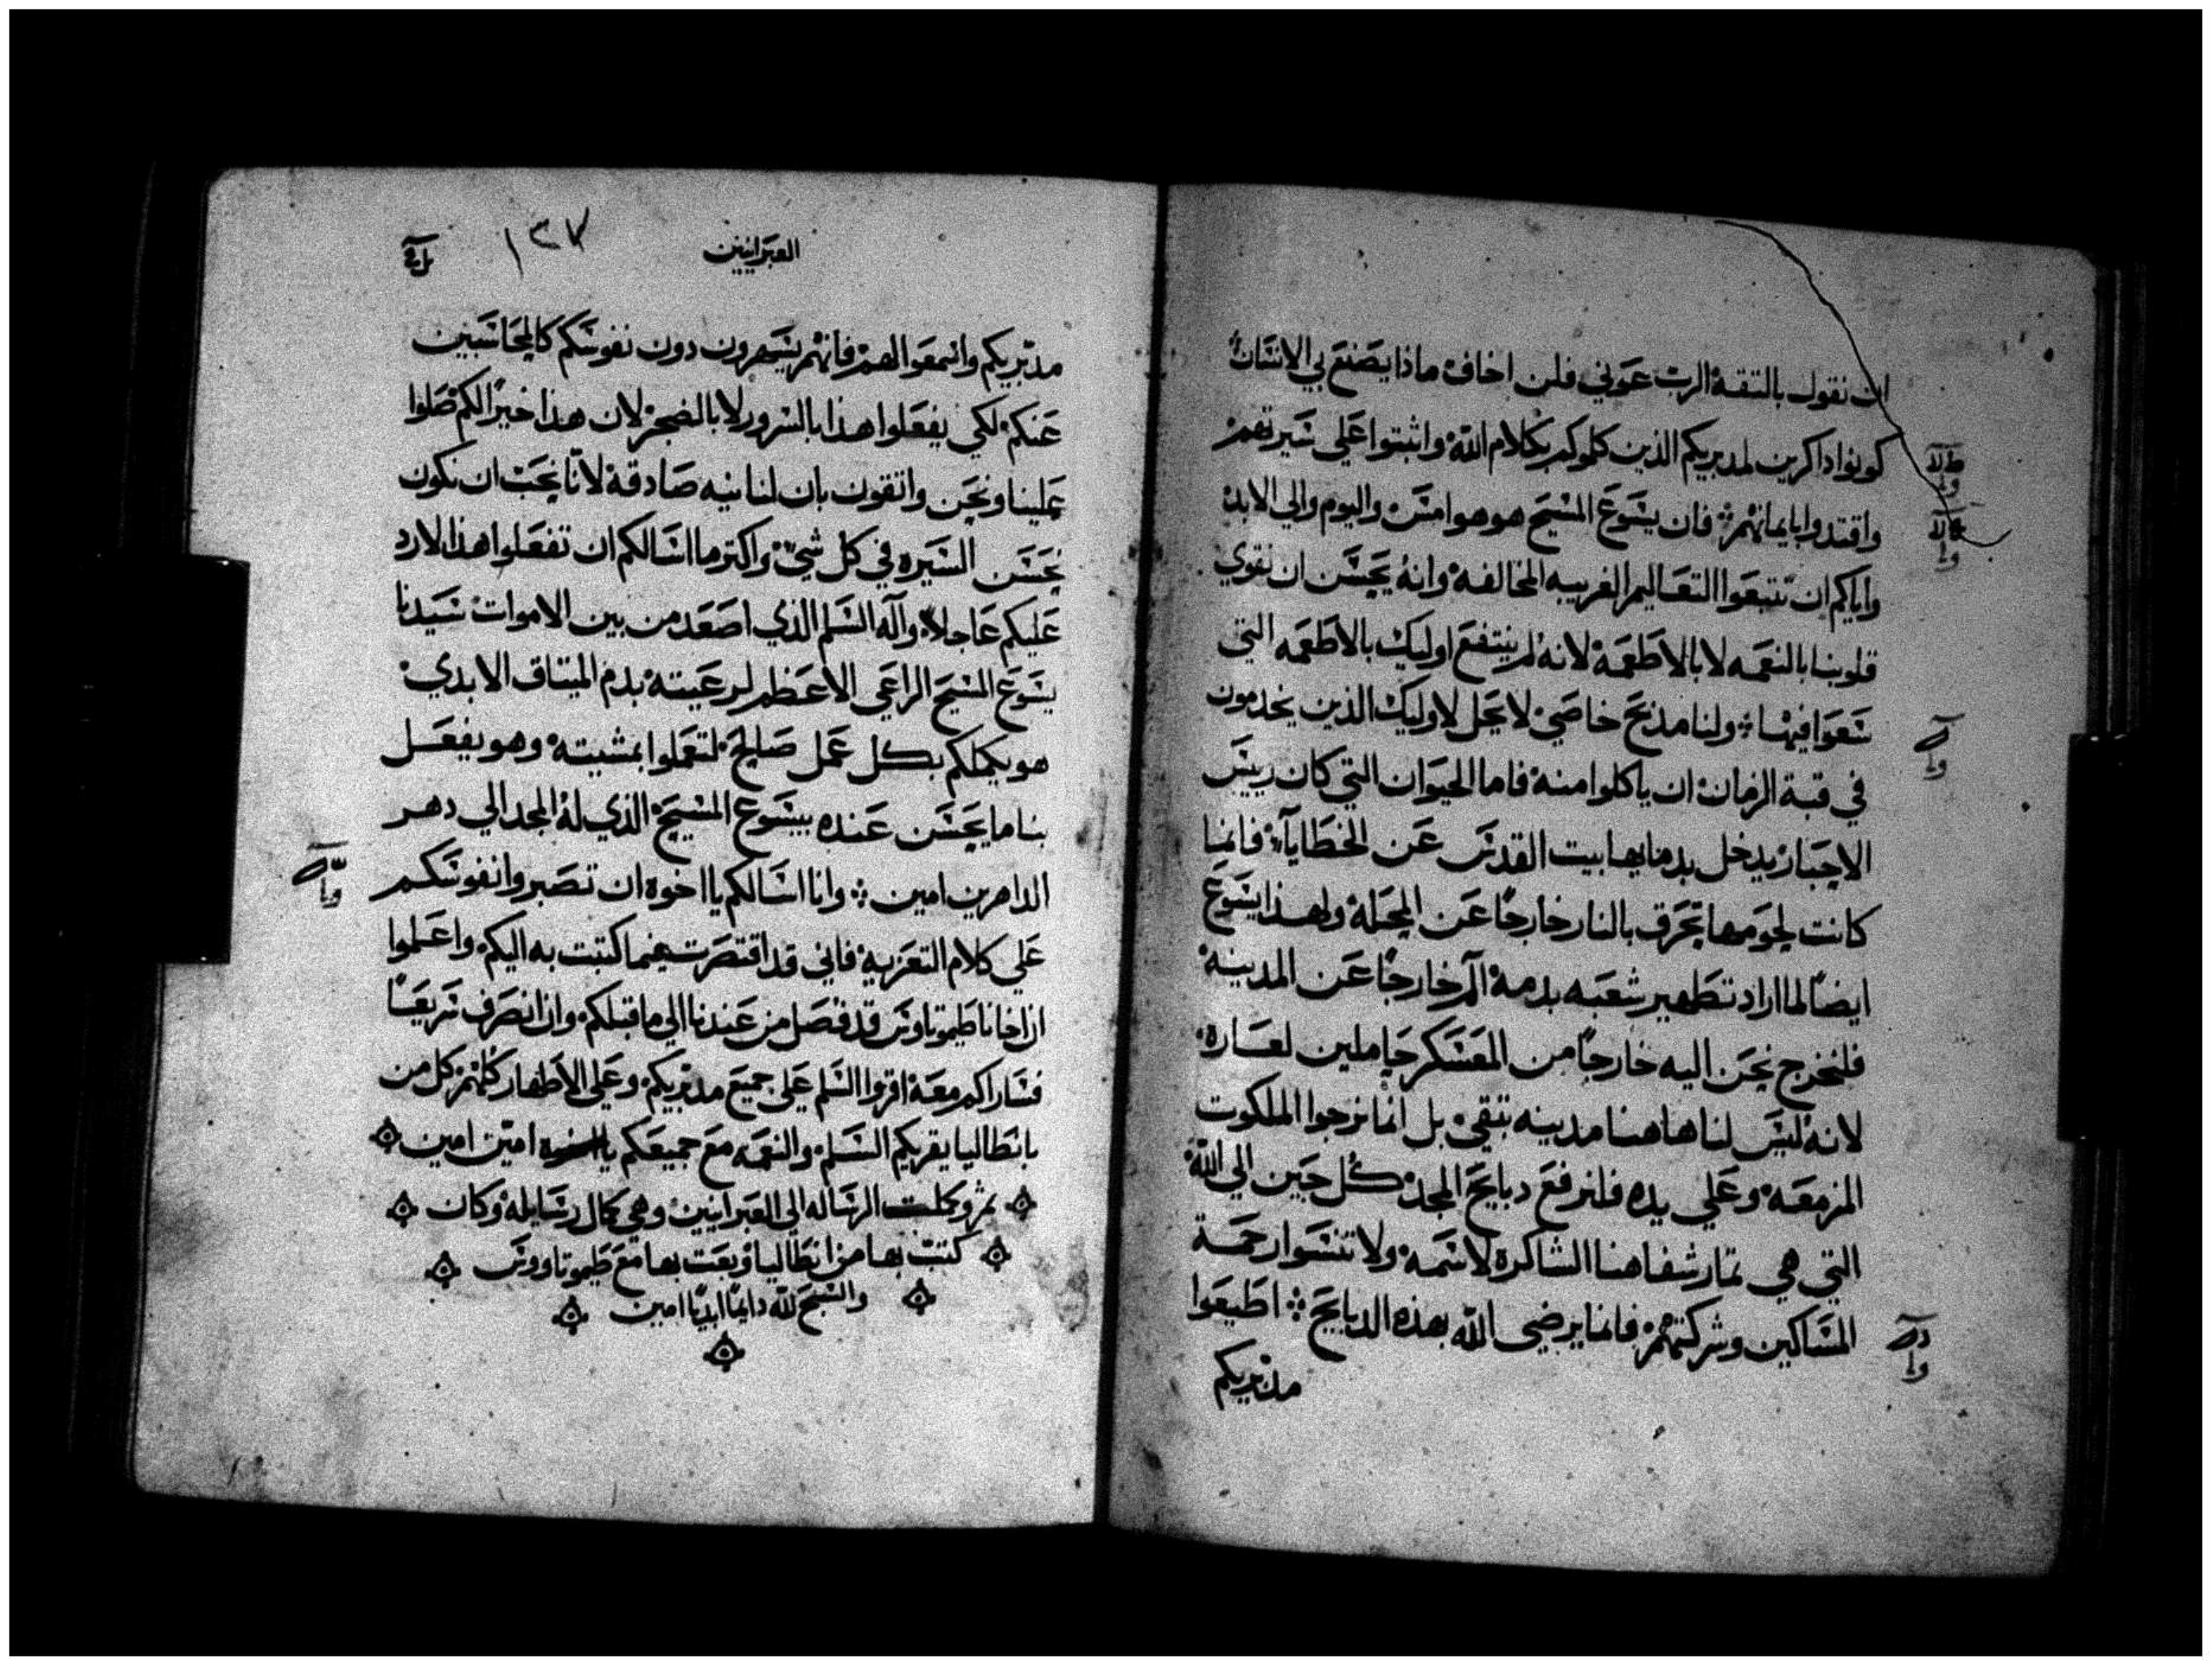 ان نقول بالتقه الرب عوني فلن اخاف ماذا يصنع بي الانسان
كونوا داكرين لمدبريكم الذين كلموكم بكلام الله واثبتوا علي سيرتهم
واقتدوا بايمانهم فان يسوع المسيح هو هو امس واليوم والي الابد
واياكم ان تتبعوا التعاليم الغريبه المخالفه وانه يحسن ان نقوي
قلوبنا بالنعمه لا بالاطعمه لانه لم ينتفع اوليك بالاطعمه التي
سعوا فيها ولنا مذبح خاصي لا يحل لاوليك الذين يخدمون
في قبة الزمان ان ياكلوا منه فاما الحيوان التي كان رييس
الاحبار يدخل بدمايها بيت القدس عن الخطايا فانما
كانت لحومها تحرق بالنار خارجا عن المحله ولهذا يسوع
ايضا لما اراد تطهير شعبه بدمه الم خارجا عن المدينه
فلنخرج نحن اليه خارجا من المعسكر حاملين لعاره
لانه ليس لنا هاهنا مدينه تبقي بل انما نرجوا الملكوت
المزمعه وعلي يده فلنرفع دبايح المجد كل حين الي الله
التي هي تمار شفاهنا الشاكرة لاسمه ولا تنسوا رحمة
المساكين وشركتهم فانما يرضي الله بهذه الدبايح اطيعوا
مدبريكم
العبرانيين
١٣٧
مدبريكم واسمعوا لهم فانهم يسهرون دون نفوسكم كالمحاسبين
عنكم لكي يفعلوا هذا بالسرور لا بالضجر لان هذا خيرا لكم صلوا
علينا ونحن واتقون بان لنا نيه صادقة لانا نحب ان نكون
بحسن السيره في كل شي واكتر ما اسالكم ان تفعلوا هذا لارد
عليكم عاجلا واله السلم الذي اصعد من بين الاموات سيدنا
يسوع المسيح الراعي الاعظم لرعيته بدم الميتاق الابدي
هو يكملكم بكل عمل صالح لتعملوا بمشيته وهو يفعل
بنا ما يحسن عنده بيسوع المسيح الذي له المجد الي دهر
الداهرين امين وانا اسالكم يا اخوه ان تصبروا نفوسكم
علي كلام التعزيه فاني قد اقتصرت فيما كتبت به اليكم واعلموا
ان اخانا طيموتاوس قد فصل من عندنا الي ما قبلكم وان انصرف سريعا
فساراكم معه اقروا السلم علي جميع مدبريكم وعلي الاطهار كلهم كل من
بانطاليا يقريكم السلم والنعمه مع جميعكم يا اخوه امين امين
تم وكملت الرساله الي العبرانيين وهي كمال رسايله وكان
كتب بها من انطاليا وبعت بها مع طيموتاووس
والسبح لله دايما ابديا امين